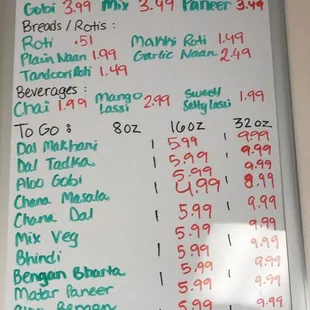 Gobi 3.99 Mix 3.99 Paneer 3.49
Breads / Rotis :
Roti .51 Makki Roti 1.49
Plain Naan 1.99 Garlic Naan 2.49
Tandoori Roti 1.49
Beverages :
Chai 1.99 Mango Lassi 2.99 Sweet/ Salty lassi 1.99
To Go : 8oz 16oz 32oz
Dal Makhani 5.99 9.99
Dal Tadka 5.99 9.99
Aloo Gobi 5.99 9.99
Chana Masala 4.99 8.99
Chana Dal 5.99 9.99
Mix Veg 5.99 9.99
Bhindi 5.99 9.99
Bengan Bharta 5.99 9.99
Matar Paneer 5.99 9.99
Bengan 5.99 9.99